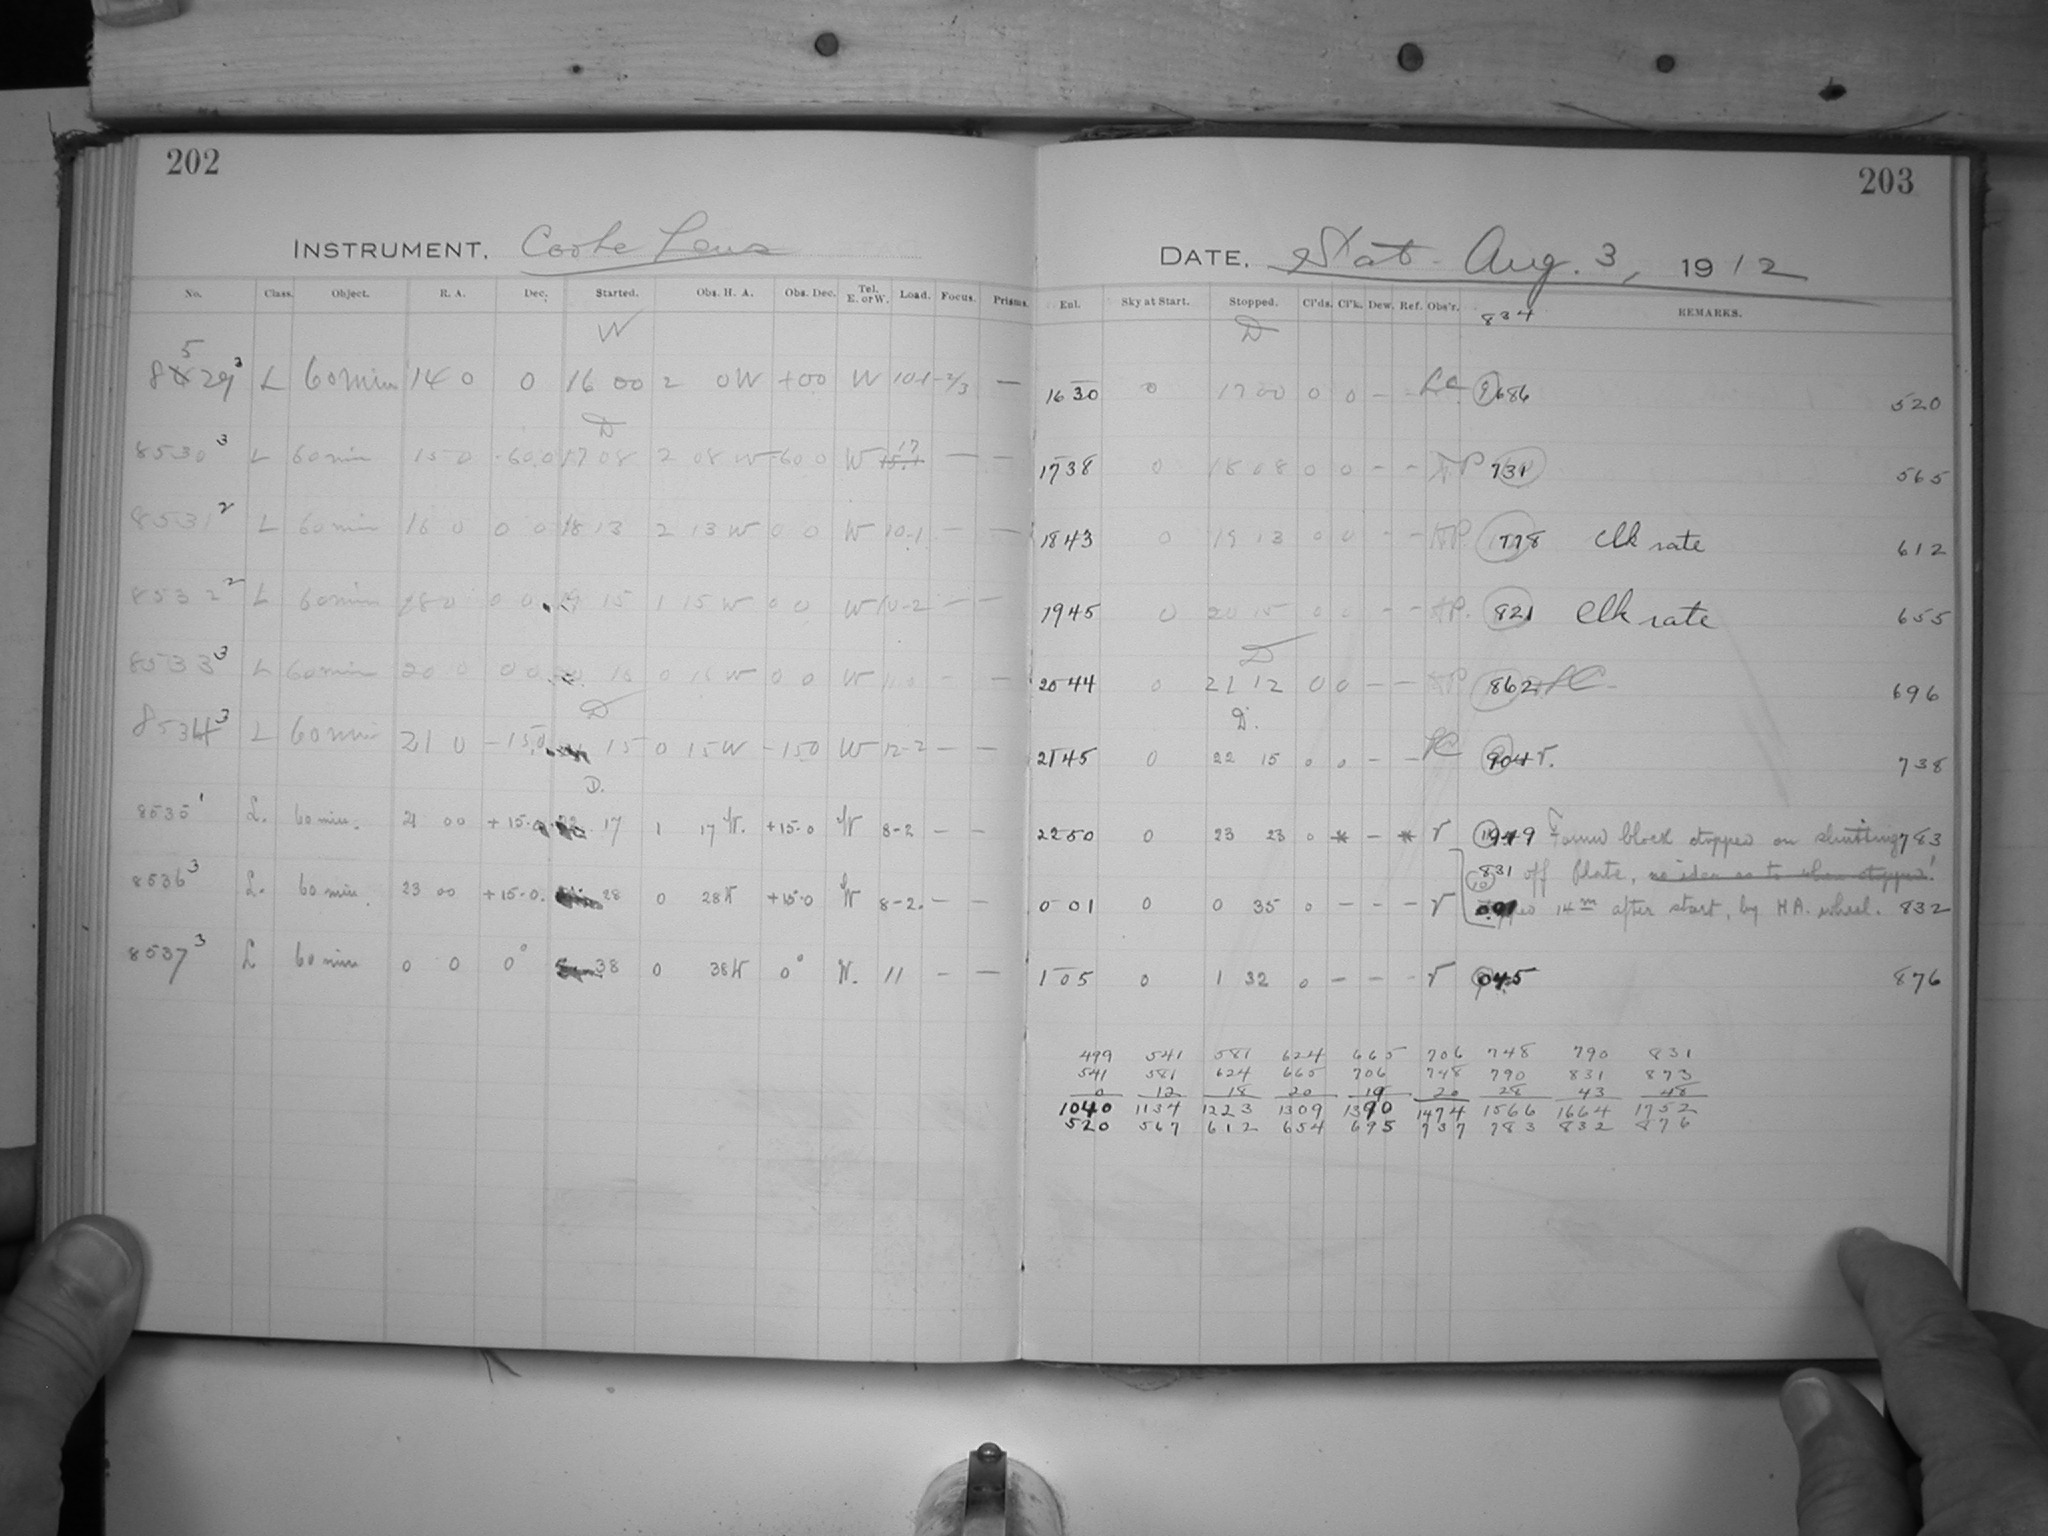 202
INSTRUMENT. Cooke Lens
No. Class. Object. R. A. Dec. Started. Obs. H. A. Obs. Dec. Tel. E. or W. Load. Focus. Prisms.
W
8529 3 L 60 min 14 0 0 16 00 2 0W +00 W 10.1 -2/3 —
D
8530 3 L 60 min 15 0 -60.0 17 08 2 08 W -60 0 W 17 — —
8531 2 L 60 min 16 0 0 0 18 13 2 13 W 0 0 W 10.1 — —
8532 2 L 60 min 18 0 0 0 19 15 1 15 W 0 0 W 10-2 — —
8533 3 L 60 min 20 0 0 0 0 W 0 0 W — —
D
8534 3 L 60 min 21 0 -15.0 15 0 15W -150 W 12-2 — —
D.
8535 1 L. 60 min. 21 00 +15.0 17 1 17 W. +15.0 W 8-2 — —
8536 3 L. 60 min. 23 00 +15.0. 28 0 28W +15.0 W 8-2. — —
8537 3 L 60 min 0 0 0° 38 0 38W 0° W. 11 — —
203
DATE. Sat. Aug. 3, 1912
Eul. Sky at Start. Stopped. Cl'ds. Cl'k. Dew. Ref. Obs'r. REMARKS.
834
D
16 30 0 17 00 0 0 — — 686 520
17 38 0 18 08 0 0 — — AP 731 565
18 43 0 19 13 0 0 — — AP. 778 clk rate 612
19 45 0 20 15 0 0 — — AP. 821 Clk rate 655
D
20 44 0 21 12 0 0 — — AP 862 696
D.
21 45 0 22 15 0 0 — — 904 738
22 50 0 23 23 0 * — * r 949 block stopped on shutting 783
831 off plate, no idea as to when stopped!
0 01 0 0 35 0 — — — r 14m after start, by H.A. wheel. 832
1 05 0 1 32 0 — — — r 045 876
499 541 581 624 665 706 748 790 831
541 581 624 665 706 748 790 831 873
0 12 18 20 19 20 28 43 48
1040 1134 1223 1309 1390 1474 1566 1664 1752
520 567 612 654 695 737 783 832 876